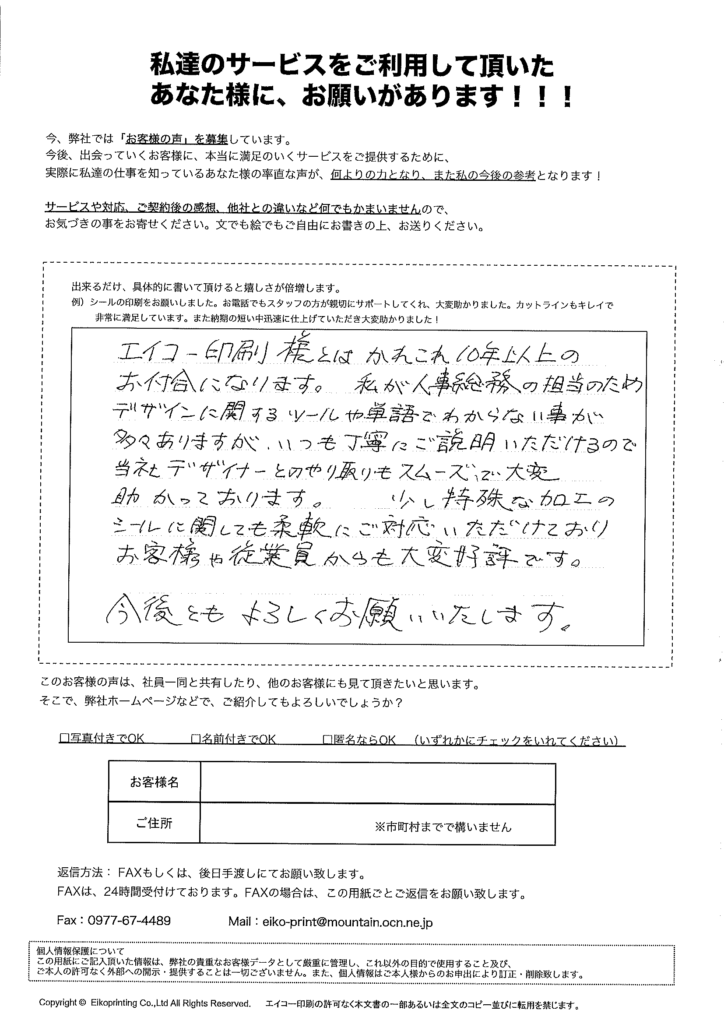 私達のサービスをご利用して頂いた
あなた様に、お願いがあります！！！
今、弊社では「お客様の声」を募集しています。
今後、出会っていくお客様に、本当に満足のいくサービスをご提供するために、
実際に私達の仕事を知っているあなた様の率直な声が、何よりの力となり、また私の今後の参考となります！
サービスや対応、ご契約後の感想、他社との違いなど何でもかまいませんので、
お気づきの事をお寄せください。文でも絵でもご自由にお書きの上、お送りください。
出来るだけ、具体的に書いて頂けると嬉しさが倍増します。
例）シールの印刷をお願いしました。お電話でもスタッフの方が親切にサポートしてくれ、大変助かりました。カットラインもキレイで
非常に満足しています。また納期の短い中迅速に仕上げていただき大変助かりました！
エイコー印刷様とはかれこれ10年以上の
お付合になります。 私が人事総務の担当のため
デザインに関するツールや単語でわからない事が
多々ありますが、いつも丁寧にご説明いただけるので
当社デザイナーとのやり取りもスムーズで大変
助かっております。 少し特殊な加工の
シールに関しても柔軟にご対応いただけており
お客様や従業員からも大変好評です。
今後ともよろしくお願いいたします。
このお客様の声は、社員一同と共有したり、他のお客様にも見て頂きたいと思います。
そこで、弊社ホームページなどで、ご紹介してもよろしいでしょうか？
□写真付きでOK □名前付きでOK □匿名ならOK （いずれかにチェックをいれてください）
お客様名
ご住所 ※市町村までで構いません
返信方法： FAXもしくは、後日手渡しにてお願い致します。
FAXは、24時間受付けております。FAXの場合は、この用紙ごとご返信をお願い致します。
Fax：0977-67-4489 Mail：eiko-print@mountain.ocn.ne.jp
個人情報保護について
この用紙にご記入頂いた情報は、弊社の貴重なお客様データとして厳重に管理し、これ以外の目的で使用すること及び、
ご本人の許可なく外部への開示・提供することは一切ございません。また、個人情報はご本人様からのお申出により訂正・削除致します。
Copyright © Eikoprinting Co.,Ltd All Rights Reserved. エイコー印刷の許可なく本文書の一部あるいは全文のコピー並びに転用を禁じます。